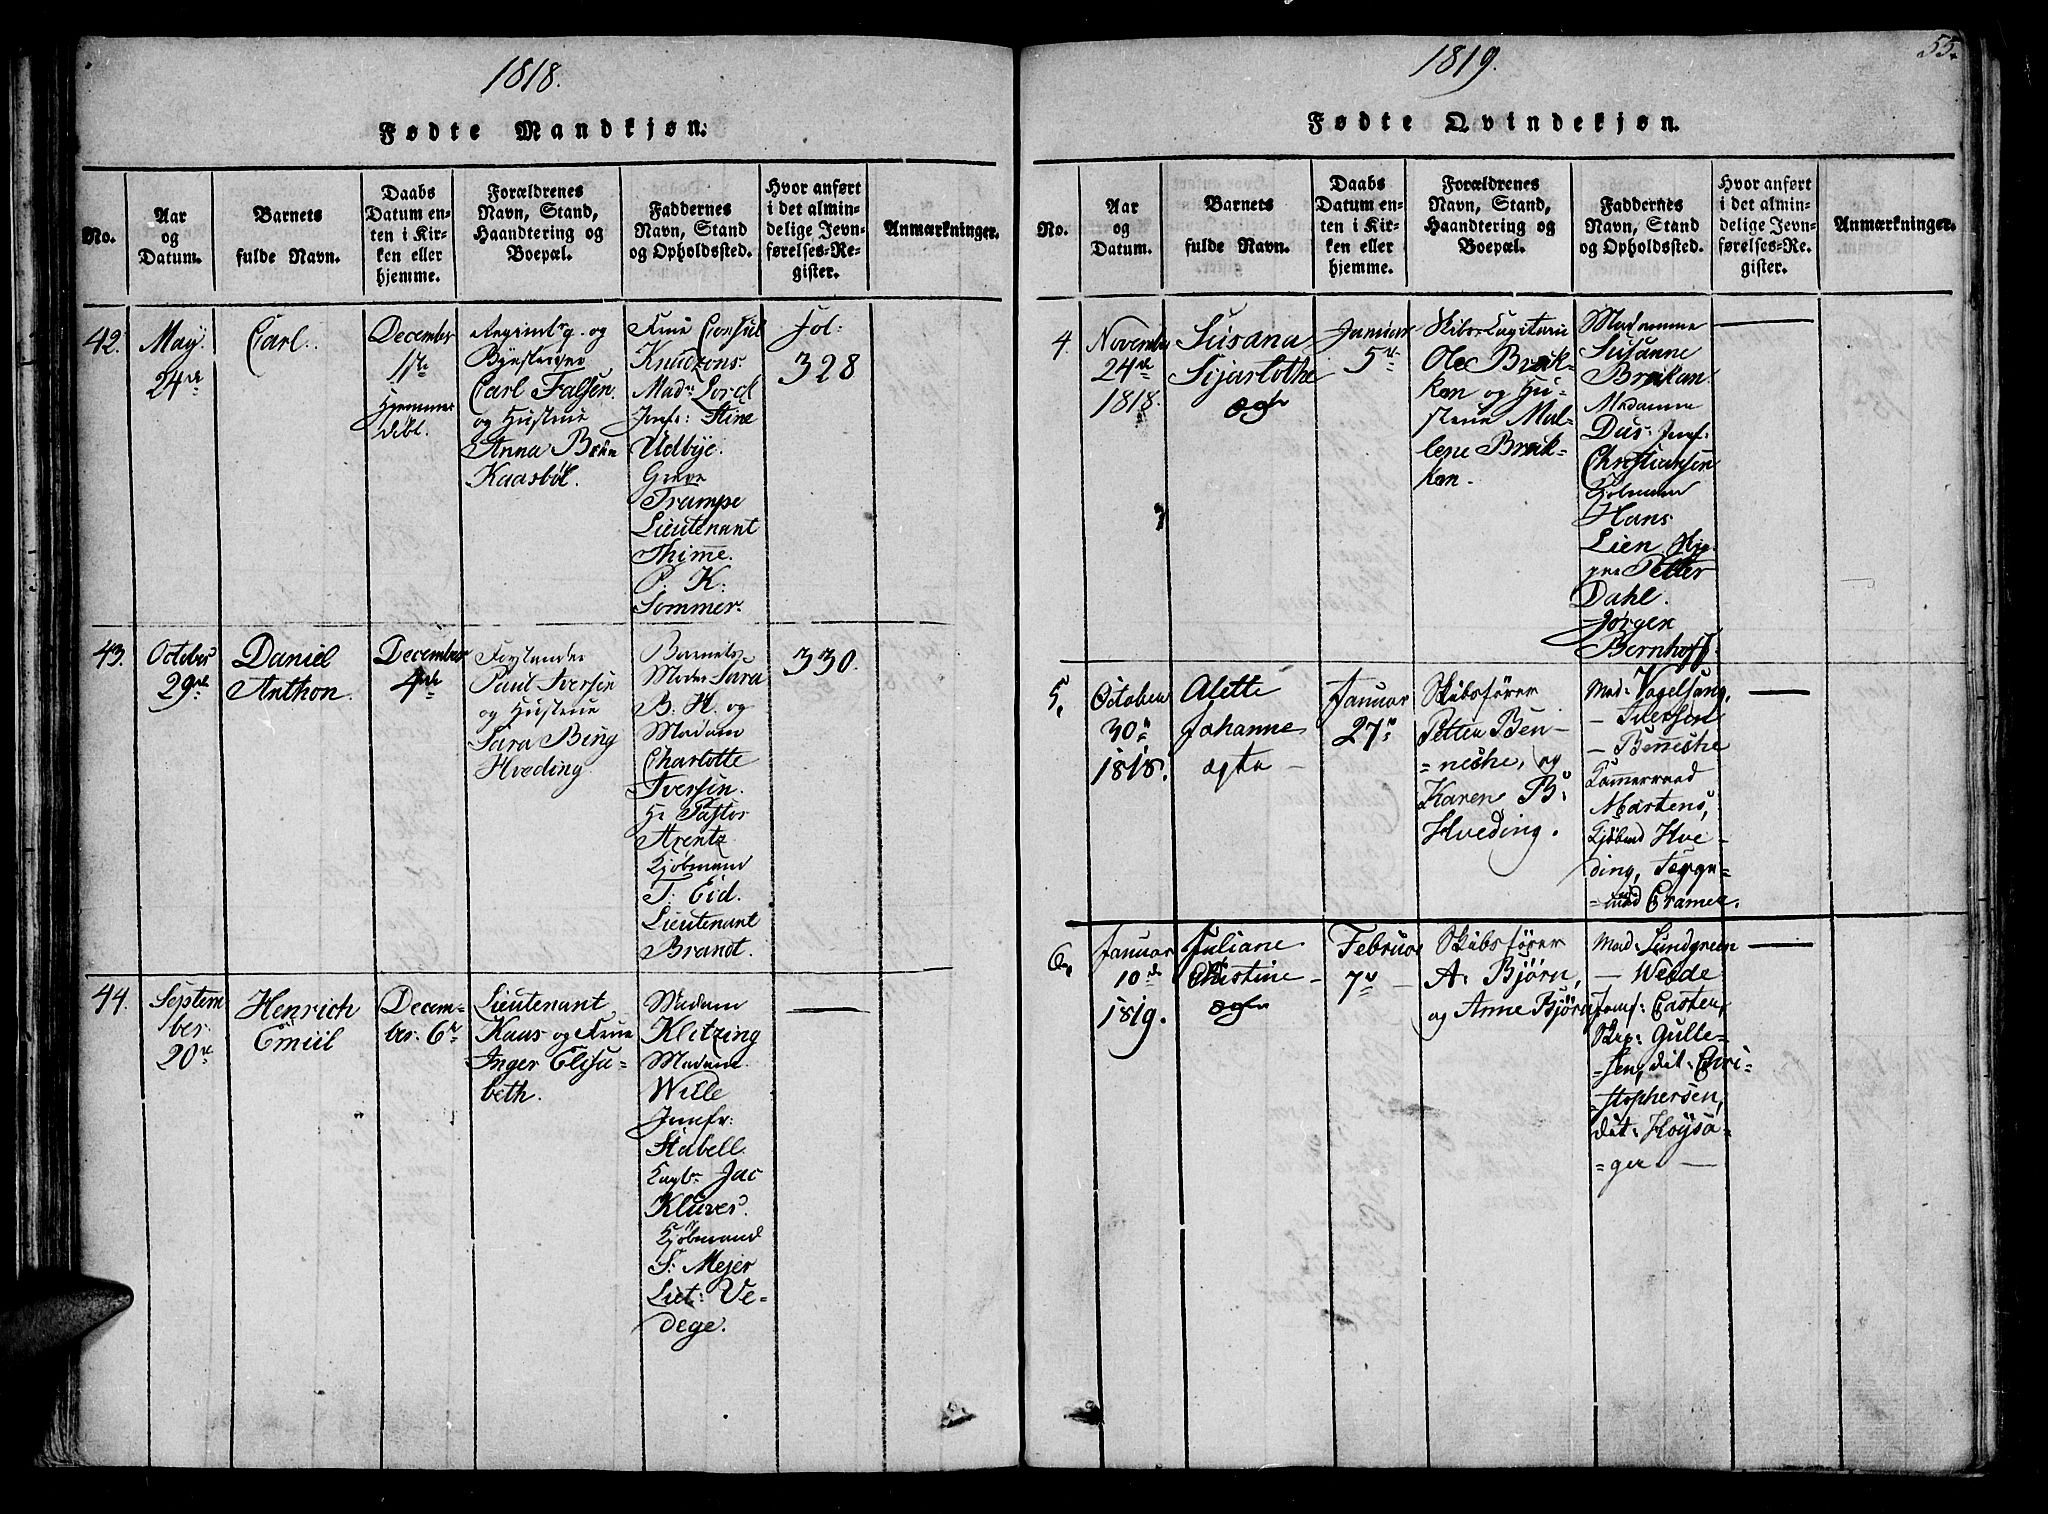 1818.
Fødte Mandkjøn.
No.
Aar
og
Datum.
Barnets
fulde Navn.
Daabs
Datum en-
ten i Kir-
ken eller
hjemme.
Forældrenes
Navn, Stand,
Haandtering og
Boepæl.
Faddernes
Navn, Stand
og Opholdssted.
Hvor anført
i det almin-
delige Jevn-
førelses-Re-
gister.
Anmærkninger.
42.
May.
24de
Carl.
December
11te
Hjemme
døbt.
og
Carl Falsen.
og Hustrue
Anna
Kaasbøl.
Frue Consul
Knudzons.
Mad: Lord
Jmfr: Stine
Udbye.
Greve
Trampe
Lieutenant
Thime.
P. K:
Sommer.
Fol:
328
43.
October
29de
Daniel
Anthon.
December
4de
Paul Iversen
og Hustrue
Sara Bing
Hveding.
Barnets
Moder Sara
B. H. og
Madam
Charlotte
Iversen.
Hr Pastor
Arentz
Kjøbmand
T. Eid.
Lieutenant
Brandt.
330.
44.
Septem
ber.
20de
Henrich
Emiil
Decem-
ber. 6te
Lieutenant
Kaas og Frue
Inger Elisa-
beth.
Madam
Klitzing
Madam.
Wille
Jomfr:
Stabell.
Capt: Jac
Klüver.
Kjøbmand
S: Mejer
Liet: Ve-
dege.
1819.
55.
Fødte Qvindekjøn.
No.
Aar
og
Datum.
Barnets
fulde Navn.
Daabs
Datum en-
ten i Kir-
ken eller
hjemme.
Forældrenes
Navn, Stand,
Haandtering og
Boepæl.
Faddernes
Navn, Stand
og Opholdssted.
Hvor anført
i det almin-
delige Jevn-
førelses-Re-
gister.
Anmærkninger.
4.
November
24de
1818.
Susana
Sijarlothe
ægte
Januar
5te
Skibs Capitain
Ole Brek-
ken og Hu-
strue Mal-
lene Brek-
ken.
Madamme
Susanne
Brekan.
Madamme
Dus: Jmf:
Christiansen
Kjøbmand
Hans
Lien.
Petter
Dahl.
Jørgen
Bernhoff.
5.
October
30te
1818.
Alette
Johanne
ægte —
Januar
27de
Skibsfører
Petter Ben-
=neche, og
Karen B:
Hveding.
Mad: Vogelsang,
— Iversen
— Benneche
Kammerraad
Mårtens,
Kjøbmd Hve-
ding,
Cramer.
6.
Januar
10de
1819.
Juliane
Christine —
ægte
Februar
7de —
Skibsfører
A: Bjørn,
og Anne Bjørn
Mad: Lundgreen
— Weide
Jomf: Carsten,
Skip: Gulle-
=sen, dit: Chri-
=stophersen,
dit: Høysa-
=ger. —